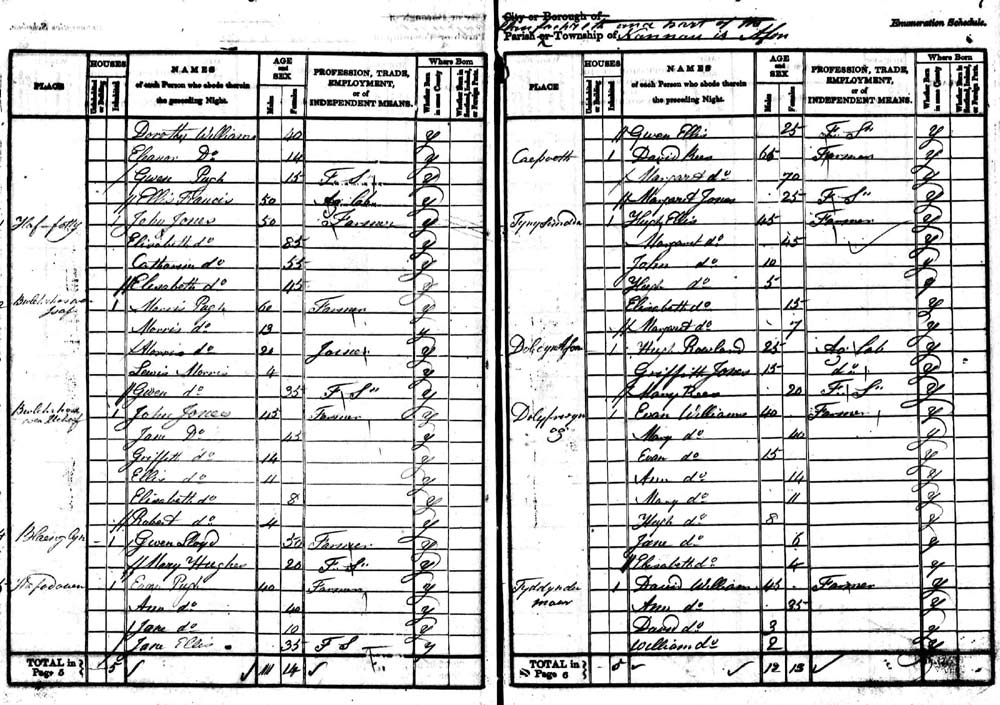 City or Borough of
and part of the
Parish or Township of
Enumeration Schedule.
PLACE
HOUSES
Uninhabited or Building
Inhabited
NAMES
of each Person who abode therein
the preceding Night.
AGE
and
SEX
Males
Females
PROFESSION, TRADE,
EMPLOYMENT,
or of
INDEPENDENT MEANS.
Where Born
Whether Born in same County
Whether Born in Scotland, Ireland, or Foreign Parts.
Dorothy Williams 40 y
Eleanor Do 14 y
Gwen Pugh 15 F. S. y
Ellis Francis 50 Ag. Lab. y
1 Haf-fotty 1 John Jones 50 Farmer y
Elizabeth do 85 y
Catharine do 55 y
Elizabeth do 45 y
2 1 Morris Pugh 60 Farmer y
Morris do 13 y
Morris do 20 Joiner y
Lewis Morris 4 y
Gwen do 35 F. S. y
1 John Jones 45 Farmer y
Jane Do 45 y
Griffith do 14 y
Ellis do 11 y
Elizabeth do 8 y
Robert do 4 y
4 Blaenglyn 1 Gwen Lloyd 50 Farmer y
Mary Hughes 20 F. S. y
5 1 Evan Pugh 40 Farmer y
Ann do 40 y
Jane do 10 y
Jane Ellis 35 F S y
TOTAL in
Page 5 5 11 14
PLACE
HOUSES
Uninhabited or Building
Inhabited
NAMES
of each Person who abode therein
the preceding Night.
AGE
and
SEX
Males
Females
PROFESSION, TRADE,
EMPLOYMENT,
or of
INDEPENDENT MEANS.
Where Born
Whether Born in same County
Whether Born in Scotland, Ireland, or Foreign Parts.
Gwen Ellis 25 F. S. y
1 David Rees 65 Farmer y
Margaret do 70 y
Margaret Jones 25 F. S. y
1 Hugh Ellis 45 Farmer y
Margaret do 45 y
John do 10 y
Hugh do 5 y
Elizabeth do 15 y
Margaret do 7 y
1 Hugh Rowland 25 Ag Lab y
Griffith Jones 15 do y
Mary Rees 20 F. S. y
1 Evan Williams 40 Farmer y
Mary do 40 y
Evan do 15 y
Ann do 14 y
Mary do 11 y
Hugh do 8 y
Jane do 6 y
Elizabeth do 4 y
Tyddynder
mawr 1 David William 45 Farmer y
Ann do 35 y
David do 3 y
William do 2 y
TOTAL in
Page 6 5 12 13